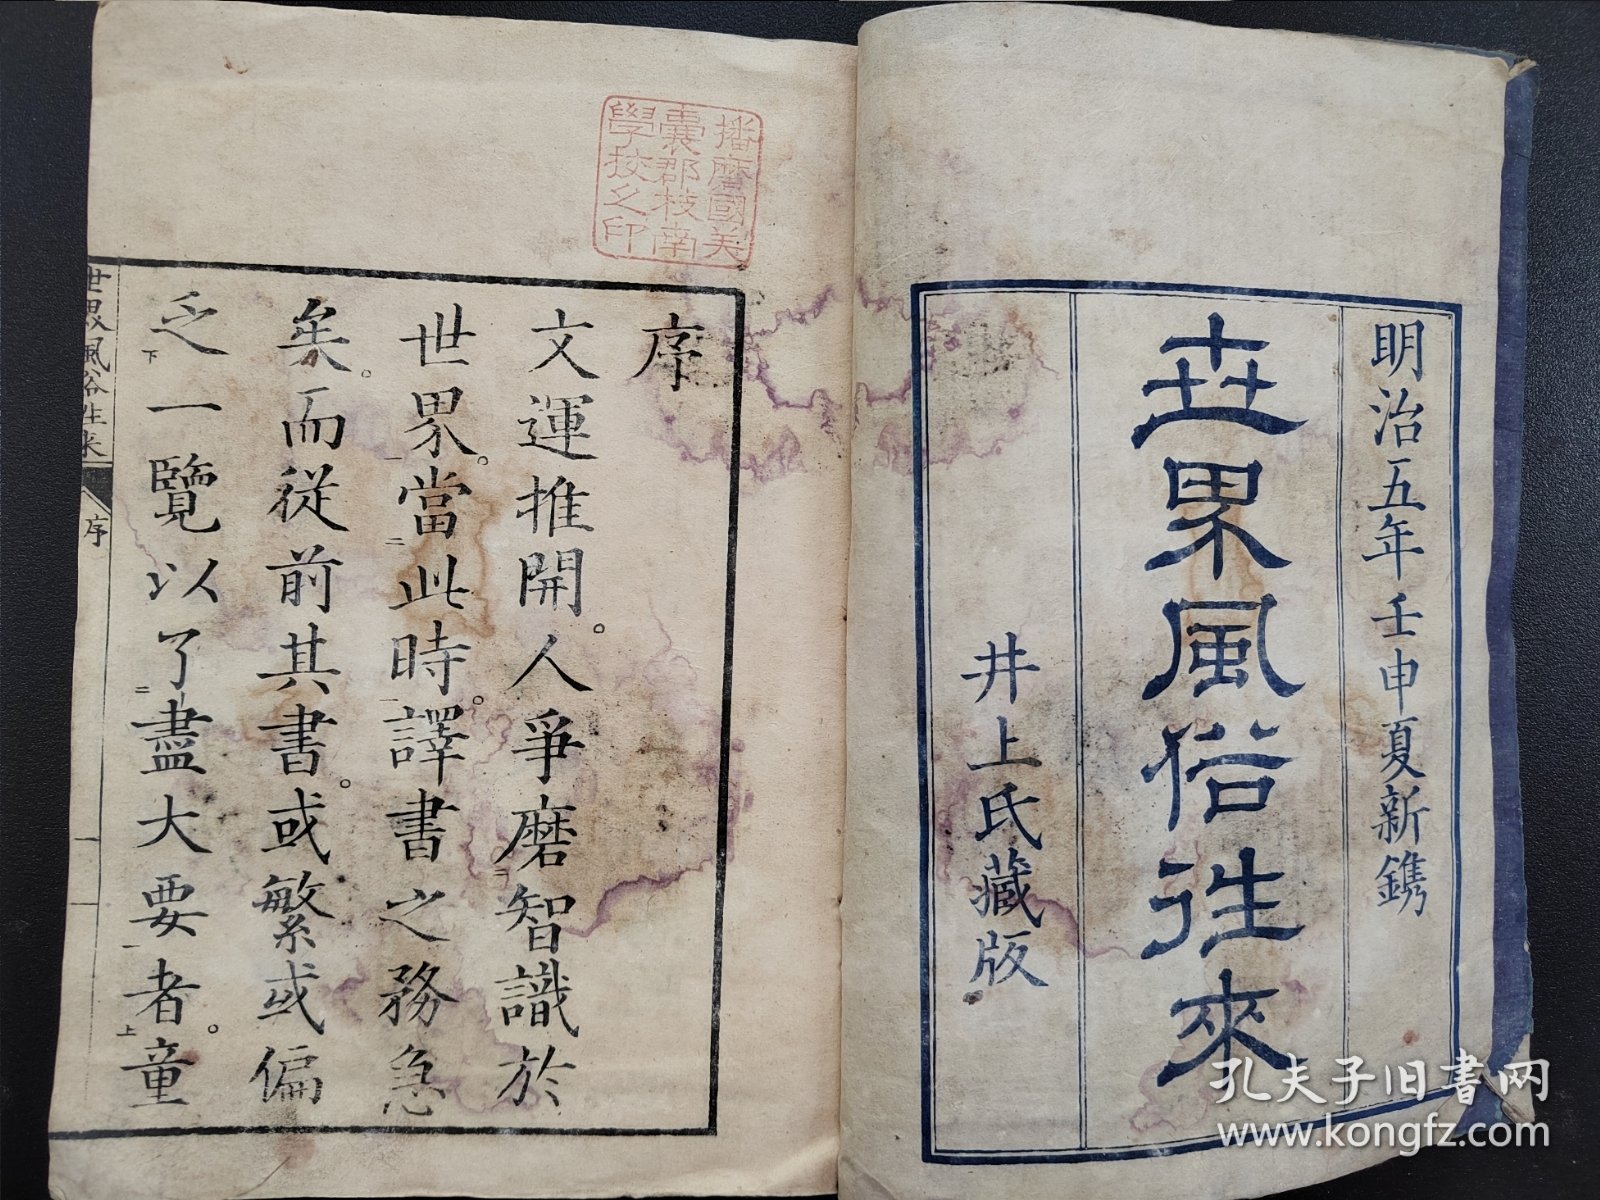 明治五年壬申夏新鐫
世界風俗往來
井上氏藏版
播磨國美
囊郡枝南
學校之印
序
文運推開。人爭磨智識於
世界。當此時。譯書之務急
矣。而從前其書。或繁或偏
乏一覽以了盡大要者。童
世界風俗往來
序
一
孔夫子旧书网
www.kongfz.com